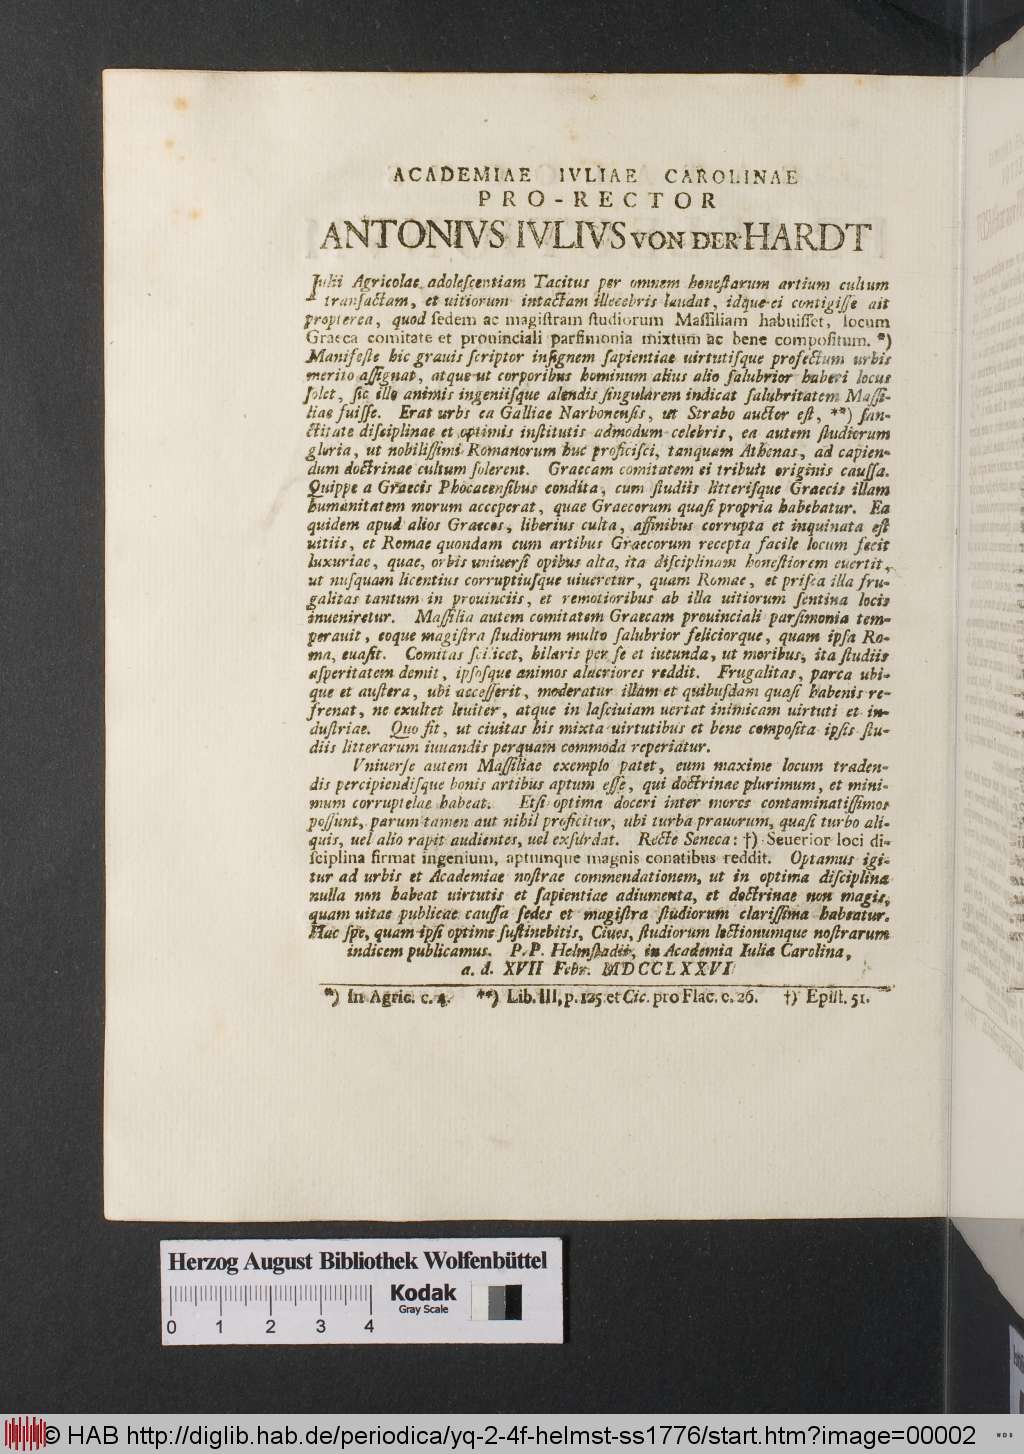 ACADEMIAE IVLIAE CAROLINAE
PRO-RECTOR
ANTONIVS IVLIVS VON DER HARDT
Julii Agricolae adoleſcentiam Tacitus per omnem honeſtarum artium cultum
tranſactam, et uitiorum intactam illecebris laudat, idque ei contigiſſe ait
propterea, quod ſedem ac magiſtram ſtudiorum Maſſiliam habuiſſet, locum
Graeca comitate et prouinciali parſimonia mixtum ac bene compoſitum. *)
Manifeſte hic grauis ſcriptor inſignem ſapientiae uirtutiſque profectum urbis
merito aſſignat, atque ut corporibus hominum alius alio ſalubrior haberi locus
ſolet, ſic ille animis ingeniiſque alendis ſingularem indicat ſalubritatem Maſſi-
liae fuiſſe. Erat urbs ea Galliae Narbonenſis, ut Strabo auctor eſt, **) ſan-
ctitate diſciplinae et optimis inſtitutis admodum celebris, ea autem ſtudiorum
gloria, ut nobiliſſimi Romanorum huc proficiſci, tanquam Athenas, ad capien-
dum doctrinae cultum ſolerent. Graecam comitatem ei tribuit originis cauſſa.
Quippe a Graecis Phocaeenſibus condita, cum ſtudiis litteriſque Graecis illam
humanitatem morum acceperat, quae Graecorum quaſi propria habebatur. Ea
quidem apud alios Graecos, liberius culta, affinibus corrupta et inquinata eſt
uitiis, et Romae quondam cum artibus Graecorum recepta facile locum fecit
luxuriae, quae, orbis uniuerſi opibus alta, ita diſciplinam honeſtiorem euertit,
ut nuſquam licentius corruptiuſque uiueretur, quam Romae, et priſca illa fru-
galitas tantum in prouinciis, et remotioribus ab illa uitiorum ſentina locis
inueniretur. Maſſilia autem comitatem Graecam prouinciali parſimonia tem-
perauit, eoque magiſtra ſtudiorum multo ſalubrior feliciorque, quam ipſa Ro-
ma, euaſit. Comitas ſcilicet, hilaris per ſe et iucunda, ut moribus, ita ſtudiis
aſperitatem demit, ipſoſque animos alacriores reddit. Frugalitas, parca ubi-
que et auſtera, ubi acceſſerit, moderatur illam et quibuſdam quaſi habenis re-
frenat, ne exultet leuiter, atque in laſciuiam uertat inimicam uirtuti et in-
duſtriae. Quo fit, ut ciuitas his mixta uirtutibus et bene compoſita ipſis ſtu-
diis litterarum iuuandis perquam commoda reperiatur.
Vniuerſe autem Maſſiliae exemplo patet, eum maxime locum traden-
dis percipiendiſque bonis artibus aptum eſſe, qui doctrinae plurimum, et mini-
mum corruptelae habeat. Etſi optima doceri inter mores contaminatiſſimos
poſſunt, parum tamen aut nihil proficitur, ubi turba prauorum, quaſi turbo ali-
quis, uel alio rapit audientes, uel exſurdat. Recte Seneca: †) Seuerior loci di-
ſciplina firmat ingenium, aptumque magnis conatibus reddit. Optamus igi-
tur ad urbis et Academiae noſtrae commendationem, ut in optima diſciplina
nulla non habeat uirtutis et ſapientiae adiumenta, et doctrinae non magis,
quam uitae publicae cauſſa ſedes et magiſtra ſtudiorum clariſſima habeatur.
Hac ſpe, quam ipſi optime ſuſtinebitis, Ciues, ſtudiorum lectionumque noſtrarum
indicem publicamus. P. P. Helmſtadii, in Academia Iulia Carolina,
a. d. XVII Febr. MDCCLXXVI
*) In Agric. c. 4. **) Lib. III, p. 125 et Cic. pro Flac. c. 26. †) Epiſt. 51.
Herzog August Bibliothek Wolfenbüttel
Kodak
Gray Scale
0 1 2 3 4
© HAB http://diglib.hab.de/periodica/yq-2-4f-helmst-ss1776/start.htm?image=00002